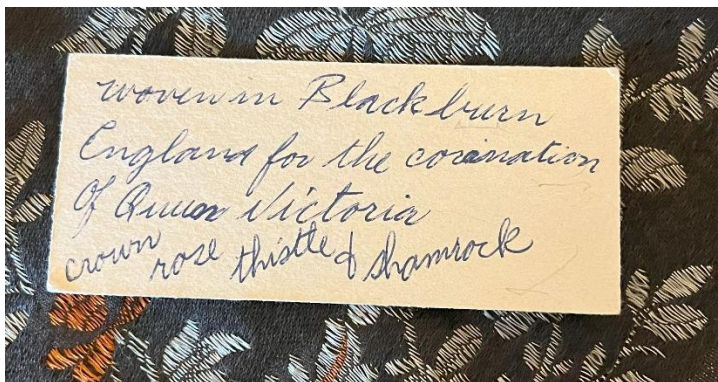 woven in Blackburn
England for the corination
Of Queen Victoria
crown rose thistle & shamrock